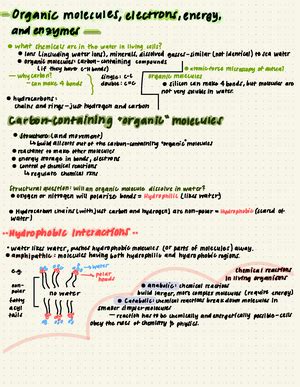 Organic molecules, electrons, energy,
and enzymes
what chemicals are in the water in living cells?
ions (including water ions), minerals, dissolved gases - similar (not identical) to sea water
organic molecules: carbon-containing compounds
(if they have c-h bonds)
why carbon?
can make 4 bonds
single: c-c
double: c=c
atomic force microscopy of actual
organic molecules
silicon can make 4 bonds, but molecules are
not very soluble in water.
hydrocarbons:
chains and rings - just hydrogen and carbon
Carbon-containing "organic" molecules
structure: (and movement)
build all cells out of the carbon-containing "organic" molecules
reactants to make other molecules
energy storage in bonds, electrons
control of chemical reactions
regulate chemical rxns
Structural question: will an organic molecule dissolve in water?
oxygen or nitrogen will polarise bonds = hydrophilic (likes water)
Hydrocarbon chains (with just carbon and hydrogen) are non-polar = hydrophobic (scared of
water)
Hydrophobic Interactions
water likes water, pushes hydrophobic molecules (or parts of molecules) away.
amphipathic: molecules having both hydrophilic and hydrophobic regions.
e.g.
water
polar
heads
non-
polar
fatty
acyl
tails
no water
chemical reactions
in living organisms
anabolic: chemical reactions
build larger, more complex molecules (require energy)
Catabolic: chemical reactions break down molecules in
smaller simpler molecules
reaction has to be chemically and energetically possible - cells
obey the laws of chemistry & physics.